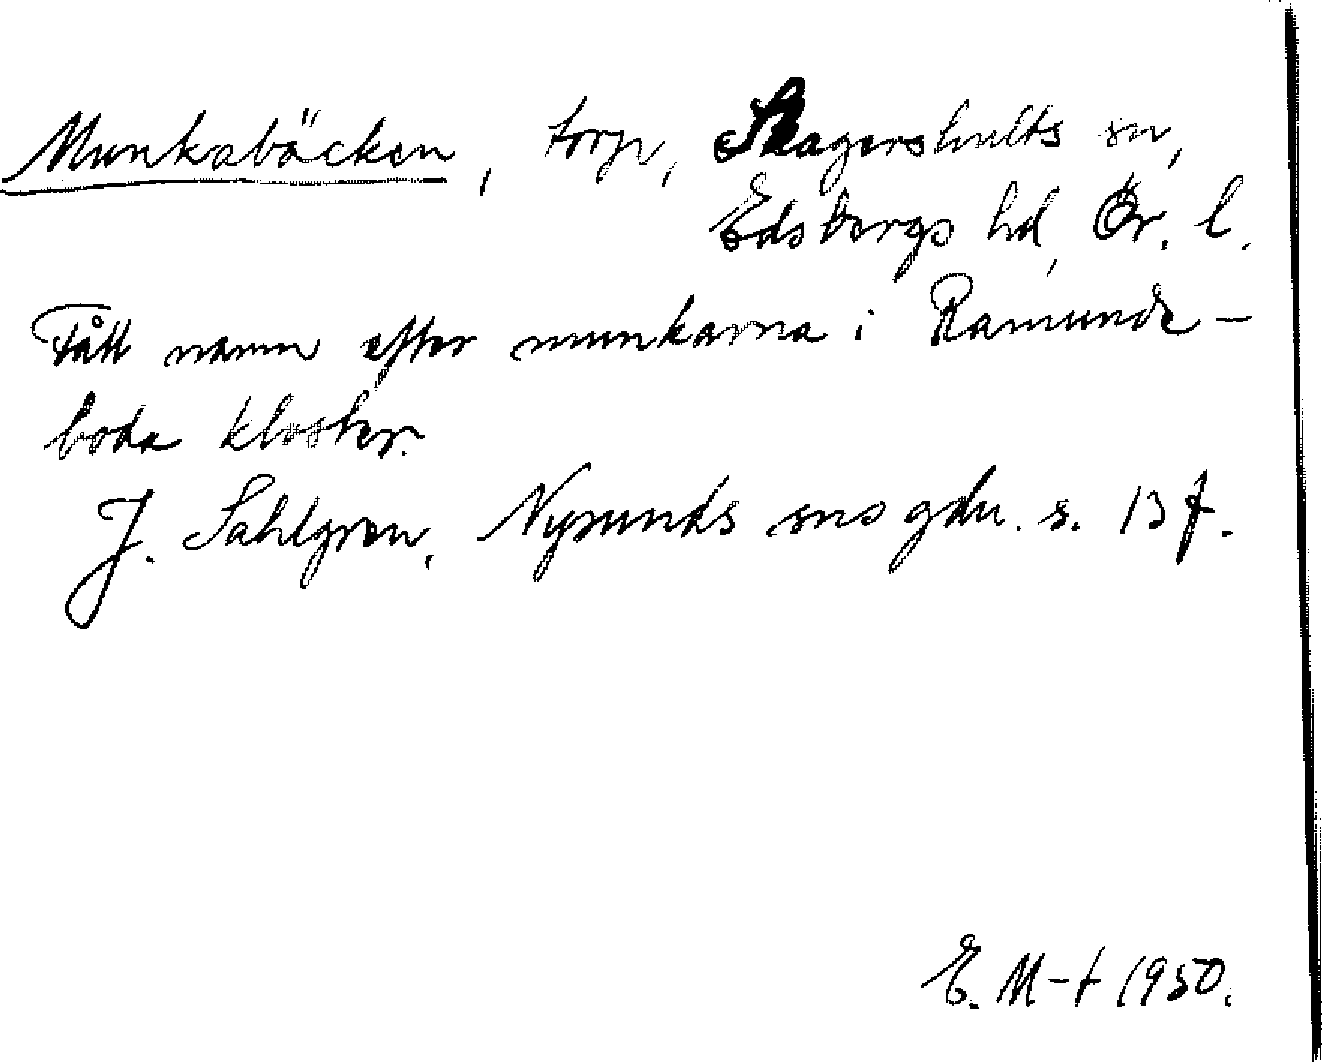 Munkabäcken, torp, Skagershults sn,
Edsbergs hd, Ör. l.
Fått namn efter munkarna i Ramunde-
boda kloster.
J. Sahlgren, Nysunds sns gdn. s. 13 f.
E. M-t 1950.